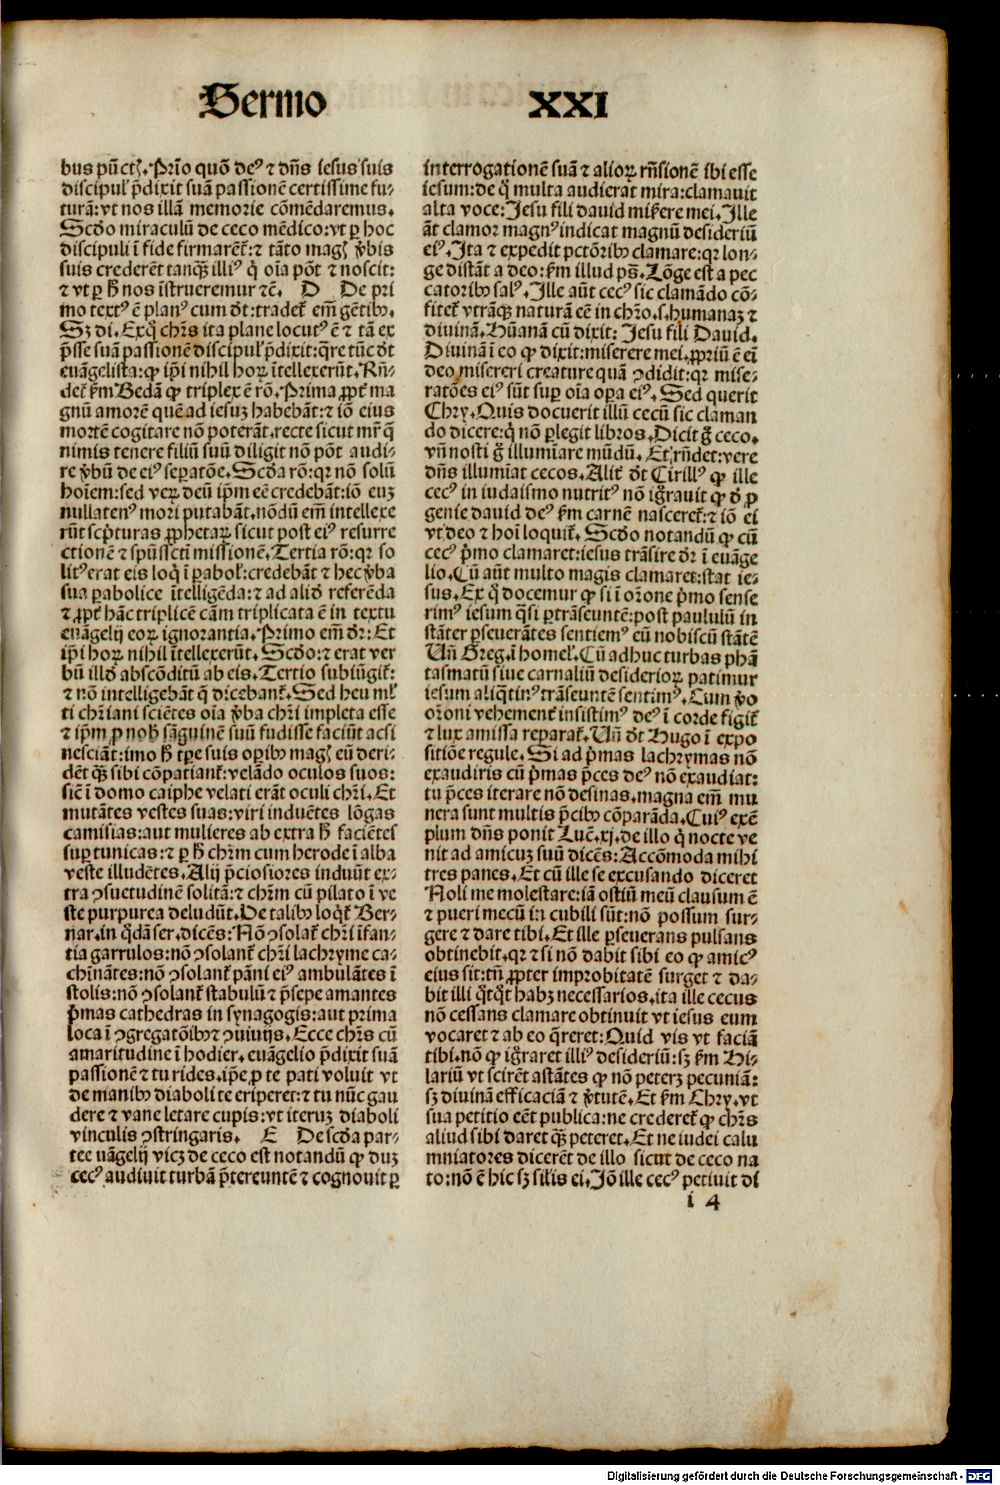 Sermo XXI
bus pūctꝭ. Prīo quō deꝰ ⁊ dn̄s iesus suis
discipul̕ p̄dixit suā passionē certissime fu-
turā: vt nos illā memorie cōmēdaremus.
Scd̕o miraculū de ceco medico: vt ꝑ hoc
discipuli ī fide firmarēt̕: ⁊ tāto magꝭ v̕bis
suis crederēt tanqꝫ illiꝰ q̕ oīa pōt ⁊ noscit:
⁊ vt ꝑ h̄ nos īstrueremur ⁊ē. D De pri
mo textꝰ ē planꝰ cum dt̄: tradet̕ em̄ gētibꝰ.
Sꝫ di. Exq̕ chr̄s ita plane locutꝰ ē ⁊ tā ex
p̄sse suā passionē discipul̕ p̄dixit: q̄re tūc dt̄
euāgelista: ꝙ ip̄i nihil hoꝝ ītellexerūt. Rn̄-
det̕ ẜm Bedā ꝙ triplex ē rō. Prima ꝓpt̕ ma
gnū amorē quē ad iesuꝫ habebāt: ⁊ iō eius
mortē cogitare nō poterāt. recte sicut mr̄ q̄
nimis tenere filiū suū diligit nō pōt audi-
re v̕bū de eiꝰ seꝑatōe. Scd̕a rō: qꝛ nō solū
hoīem: sed veꝝ deū ip̄m eē credebāt: iō euꝫ
nullatenꝰ mori putabāt. nōdū em̄ intellexe
rūt scp̄turas ꝓphetaꝝ sicut post eiꝰ resurre
ctionē ⁊ spūssctī missionē. Tertia rō: qꝛ so
litꝰ erat eis loq̕ ī ꝑabol̕: credebāt ⁊ hec v̕ba
sua ꝑabolice ītelligēda: ⁊ ad aliđ referēda
⁊ ꝓpt̕ hāc triplicē cām triplicata ē in textu
euāgelij eoꝝ ignorantia. Primo em̄ dr̄: Et
ip̄i hoꝝ nihil ītellexerūt. Scd̕o: ⁊ erat ver
bū illđ abscōditū ab eis. Tertio subiūgit̕:
⁊ nō intelligebāt q̄ dicebant̕. Sed heu ml̕
ti chr̄iani sciētes oīa v̕ba chr̄i impleta esse
⁊ ip̄m ꝓ nob̕ sāguinē suū fudisse faciūt acsi
nesciāt: imo h̄ tp̄e suis oꝑibꝰ magꝭ eū deri-
dēt qꝫ sibi cōpatiant̕: velādo oculos suos:
sicē ī domo caiphe velati erāt oculi chr̄i. Et
mutātes vestes suas: viri induētes lōgas
camisias: aut mulieres ab extra h̄ faciētes
suꝑtunicas: ⁊ ꝑ h̄ chr̄m cum herode ī alba
veste illudētes. Alij p̄ciosiores induūt ex-
tra ꝯsuetudinē solitā: ⁊ chr̄m cū pilato ī ve
ste purpurea deludūt. De talibꝰ loqt̕ Ber-
nar. in q̄dā ser. dicēs: Nō ꝯsolat̕ chr̄i īfan-
tia garrulos: nō ꝯsolant̕ chr̄i lachryme ca-
chīnātes: nō ꝯsolant̕ pāni eiꝰ ambulātes ī
stolis: nō ꝯsolant̕ stabulū ⁊ p̄sepe amantes
p̄mas cathedras in synagogis: aut prima
loca ī ꝯgregatōibꝰ ⁊ ꝯuiuijs. Ecce chr̄s cū
amaritudine ī hodier. euāgelio p̄dixit suā
passionē ⁊ tu rides. ip̄e ꝓ te pati voluit vt
de manibꝰ diaboli te eriperet: ⁊ tu nūc gau
dere ⁊ vane letare cupis: vt iteruꝫ diaboli
vinculis ꝯstringaris. E De scd̕a par-
te euāgelij vicꝫ de ceco est notandū ꝙ duꝫ
cecꝰ audiuit turbā p̄tereuntē ⁊ cognouit ꝑ
interrogationē suā ⁊ alioꝝ rn̄sionē ibi esse
iesum: de q̕ multa audierat mira: clamauit
alta voce: Jesu fili dauid mis̕ere mei. Ille
āt clamor magnꝰ indicat magnū desideriū
eiꝰ. Ita ⁊ expedit pctōribꝰ clamare: qꝛ lon-
ge distāt a deo: ẜm illud ps̄. Lōge est a pec
catoribꝰ salꝰ. Ille aūt cecꝰ sic clamādo cō-
fitet̕ vtrāqꝫ naturā eē in chr̄o. s. humanaꝫ ⁊
diuinā. Hūanā cū dixit: Jesu fili Dauid.
Diuinā ī eo ꝙ dixit: miserere mei. ꝓpriū ē eī
deo misereri creature quā ꝯdidit: qꝛ mise-
ratōes eiꝰ sūt suꝑ oīa oꝑa eiꝰ. Sed querit
Chry. Quis docuerit illū cecū sic claman
do dicere: q̕ nō ꝑlegit libros. Dicit g̕ ceco.
vn̄ nosti g̕ illumīare mūdū. Et rn̄det: vere
dn̄s illumīat cecos. Alit̕ dt̄ Cirillꝰ ꝙ ille
cecꝰ in iudaismo nutritꝰ nō ig̕rauit ꝙ d̕ ꝓ
genie dauid deꝰ ẜm carnē nasceret̕: ⁊ iō ei
vt deo ⁊ hoī loquit̕. Scd̕o notandū ꝙ cū
cecꝰ p̄mo clamaret: iesus trāsire dr̄ ī euāge
lio. Cū aūt multo magis clamaret: stat ie-
sus. Ex q̕ docemur ꝙ si ī orōne p̄mo sense
rimꝰ iesum q̄si ꝑtrāseuntē: post paululū in
stāter ꝑseuerātes sentiemꝰ eū nobiscū stātē
Vn̄ Greg. ī homel̕. Cū adhuc turbas phā
tasmatū siue carnaliū desiderioꝝ patimur
iesum aliq̄tinꝰ trāseuntē sentimꝰ. Cum v̕o
orōni vehement̕ insistimꝰ deꝰ ī corde figit̕
⁊ lux amissa reparat̕. Vn̄ dt̄ Hugo ī expo
sitiōe regule. Si ad p̄mas lachrymas nō
exaudiris cū p̄mas p̄ces deꝰ nō exaudiat:
tu p̄ces iterare nō desinas. magna em̄ mu
nera sunt multis p̄cibꝰ cōparāda. Cuiꝰ exē
plum dn̄s ponit Luē. xj. de illo q̕ nocte ve
nit ad amicuꝫ suū dicēs: Accōmoda mihi
tres panes. Et cū ille se excusando diceret
Noli me molestare: iā ostiū meū clausum ē
⁊ pueri mecū in cubili sūt: nō possum sur-
gere ⁊ dare tibi. Et ille ꝑseuerans pulsans
obtinebit. qꝛ ⁊ si nō dabit sibi eo ꝙ amicꝰ
eius sit: tn̄ ꝓpter improbitatē surget ⁊ da-
bit illi q̕tq̕t habꝫ necessarios. ita ille cecus
nō cessans clamare obtinuit vt iesus eum
vocaret ⁊ ab eo q̄reret: Quid vis vt faciā
tibi. nō ꝙ ig̕raret illiꝰ desideriū: sꝫ ẜm Hi-
lariū vt scirēt astātes ꝙ nō peterꝫ pecuniā:
sꝫ diuinā efficaciā ⁊ v̕tutē. Et ẜm Chry. vt
sua petitio eēt publica: ne crederet̕ ꝙ chr̄s
aliud sibi daret qꝫ peteret. Et ne iudei calu
mniatores dicerēt de illo sicut de ceco na
to: nō ē hic sꝫ silis ei. Jō ille cecꝰ petiuit di
i 4
Digitalisierung gefördert durch die Deutsche Forschungsgemeinschaft - DFG